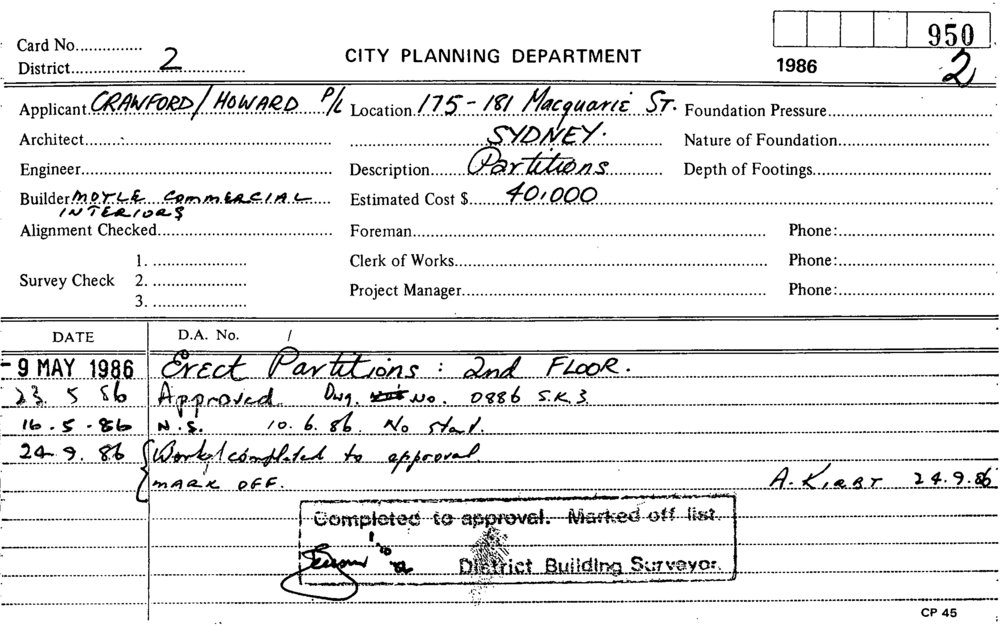 950
Card No...............
District.......2.......
CITY PLANNING DEPARTMENT
1986
2
Applicant CRAWFORD/HOWARD P/L Location 175-181 Macquarie ST. Foundation Pressure
Architect SYDNEY. Nature of Foundation
Engineer Description Partitions Depth of Footings
Builder MOYLE COMMERCIAL Estimated Cost $ 40,000
INTERIORS
Alignment Checked Foreman Phone:
1. Clerk of Works Phone:
Survey Check 2.
Project Manager Phone:
3.
DATE D.A. No. /
-9 MAY 1986 Erect Partitions: 2nd FLOOR.
23. 5 86 Approved. Dwg. No. 0886 S.K.3.
16.5.86 N.S. 10.6.86. No start.
24.9.86 Work completed to approval
MARK OFF. A. KIRBY 24.9.86
Completed to approval. Marked off list.
District Building Surveyor.
CP 45